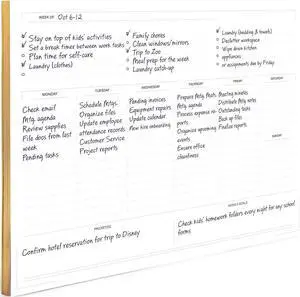 WEEK OF Oct 6-12
Stay on top of kids' activities
Set a break times between work tasks
Plan time for self-care
Laundry (clothes)
Family chores
Clean windows/mirrors
Trip to Zoo
Meal prep for the week
Laundry catch-up
Laundry (bedding & towels)
Declutter workspace
Wipe down kitchen
appliances
or assignments due by Friday
MONDAY
Check email
Mtg. agenda
Review supplies
File docs from last
week
Pending tasks
TUESDAY
Schedule Mtgs.
Organize files
Update employee
attendance records
Customer Service
Project reports
WEDNESDAY
Pending invoices
Equipment repairs
Update calendar
New hire onboarding
THURSDAY
Prepare Mtg.
Mtg. agenda
Process expense re-
ports
Organize upcoming
events
Ensure office
cleanliness
FRIDAY
Meeting minutes
Distribute Mtg. notes
Outstanding tasks
Back up files
Finalize reports
SATURDAY
PRIORITIES
Confirm hotel reservation for trip to Disney
WEEK'S GOALS
Check kids' homework folders every night for any school
forms